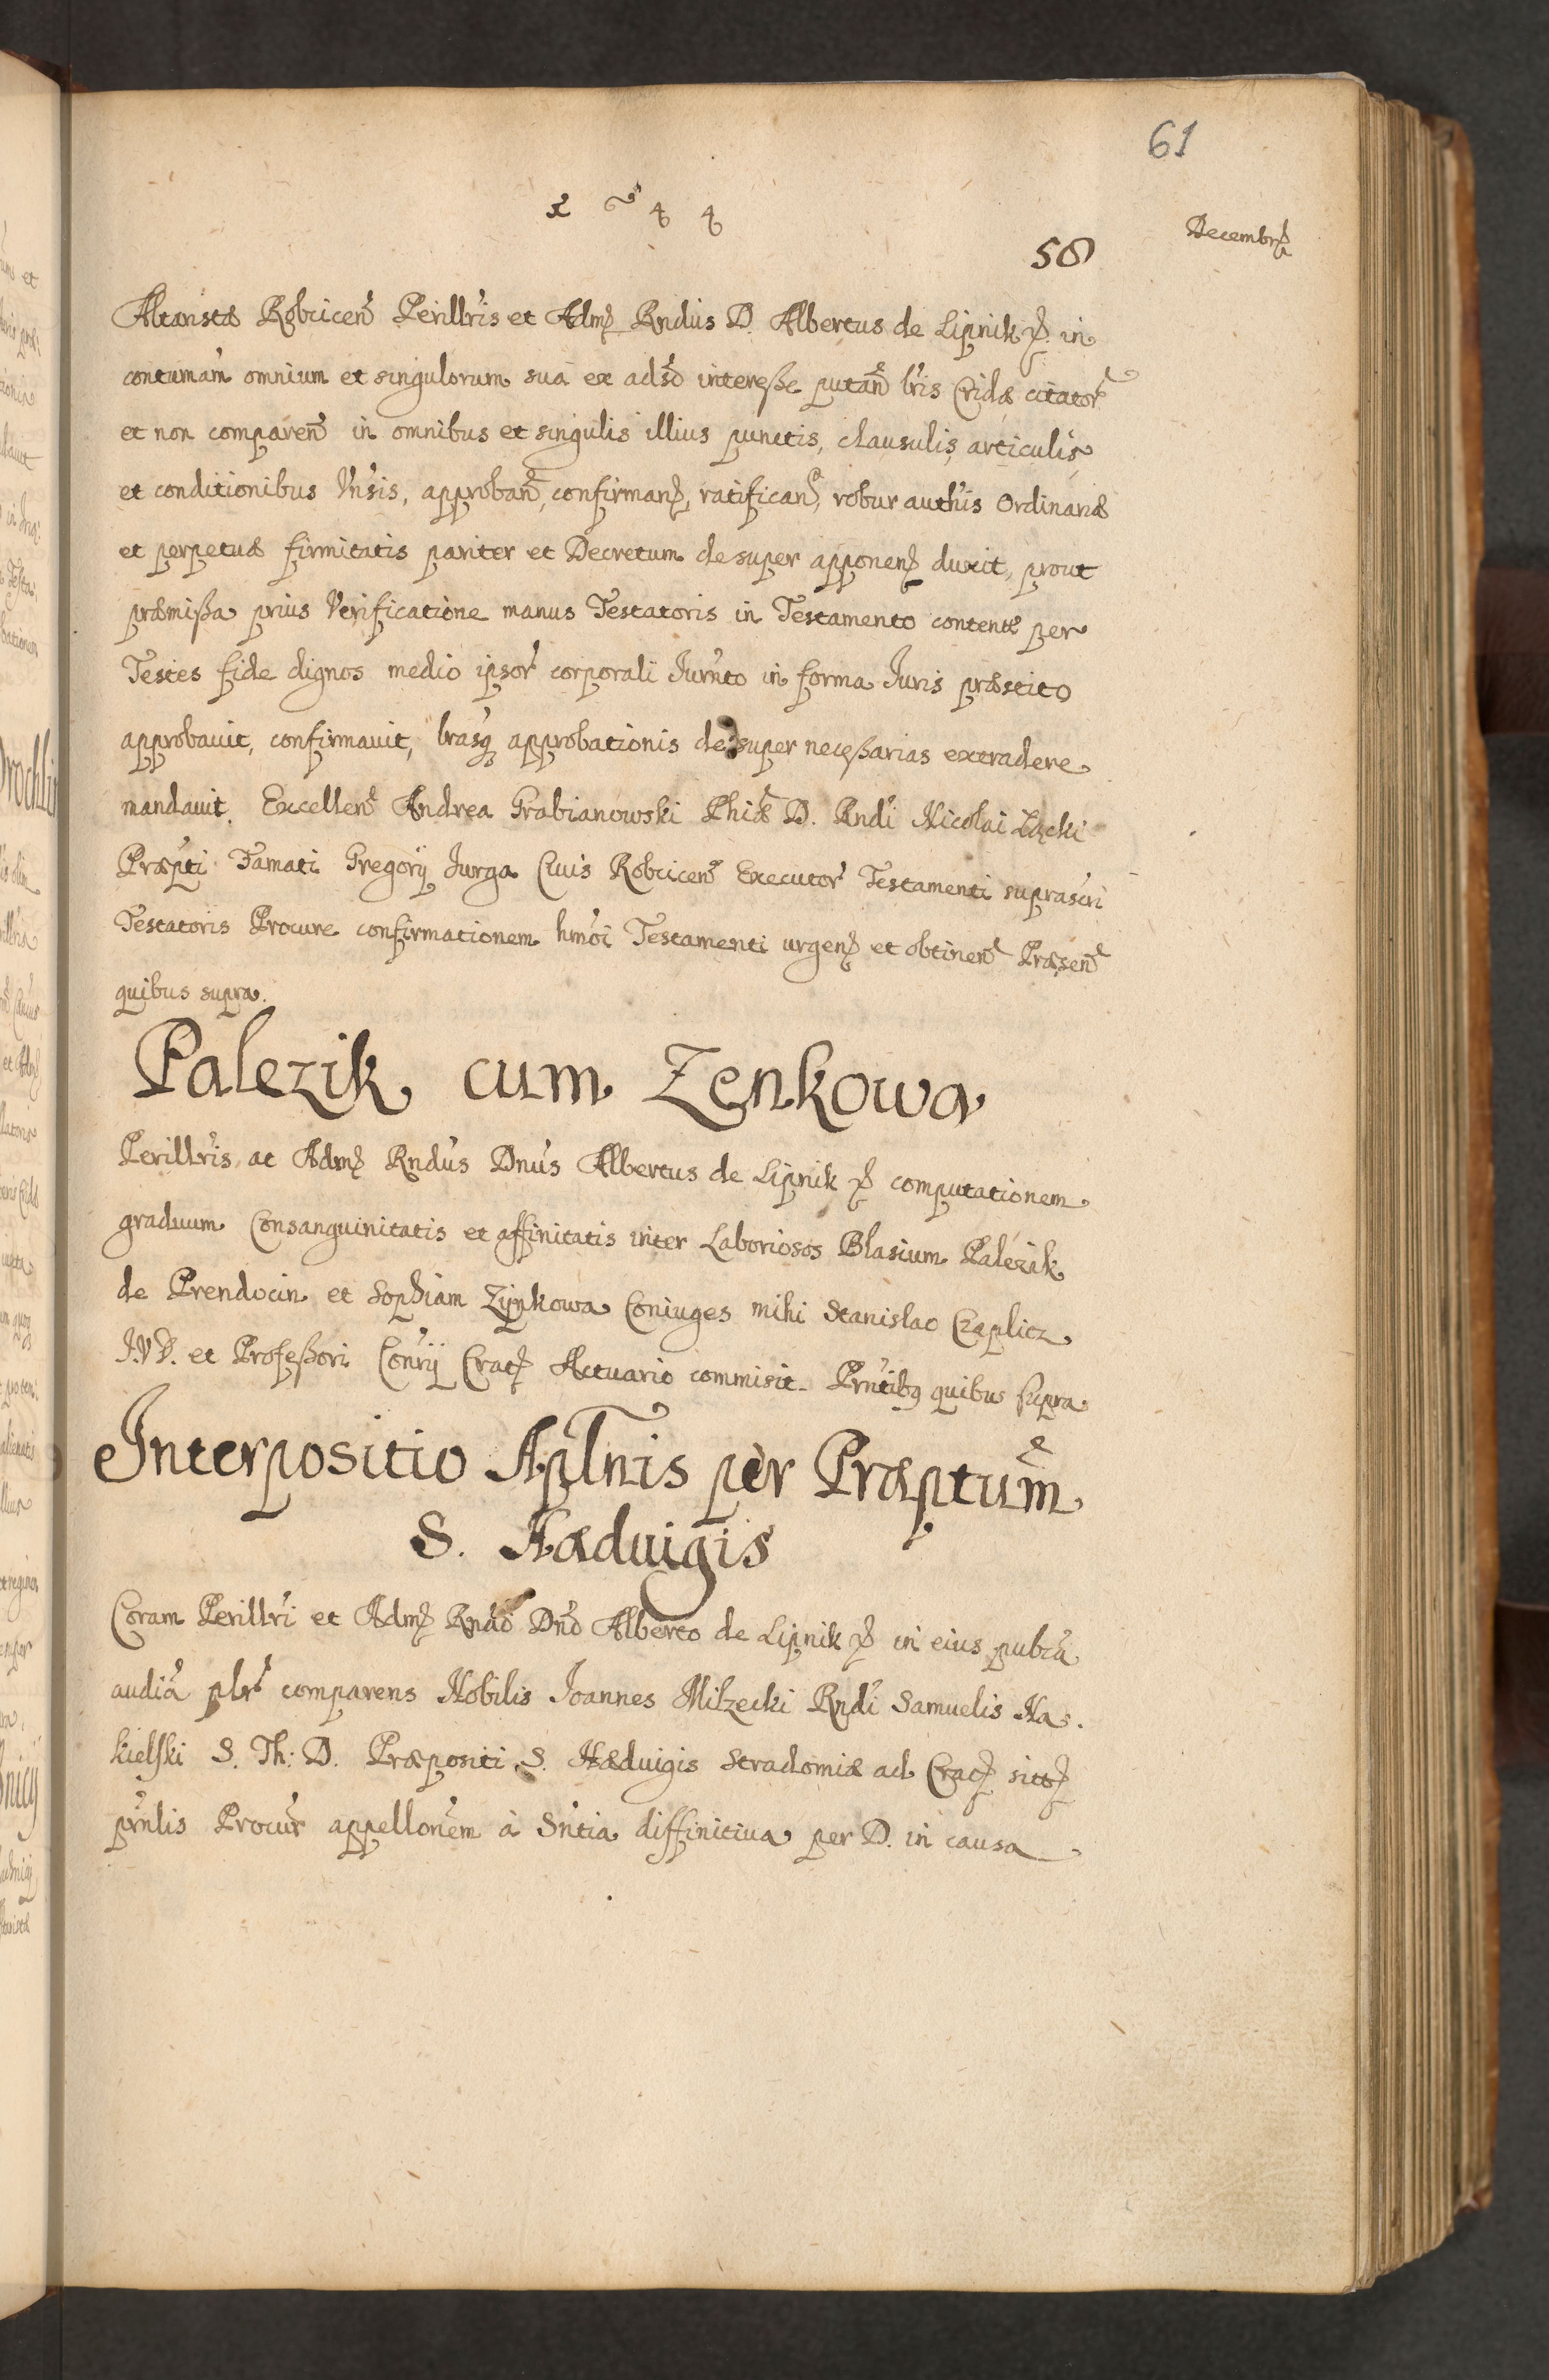 61
1644
58
Decembr
Altaristæ Robcicen Perillris et Adm Rndus D. Albertus de Lipnik in
contumam omnium et singulorum sua ex adso interesse putan lris Cridæ citator
et non comparen in omnibus et singulis illius punctis, clausulis, articulis
et conditionibus Vnsis, approban, confirman, ratifican, robur authis Ordinariæ
et perpetuæ firmitatis pariter et Decretum desuper apponen duxit, prout
præmissa prius Verificatione manus Testatoris in Testamento contentæ per
Testes fide dignos medio ipsor corporali Jurnto in forma Juris præstito
approbauit, confirmauit, lrasq approbationis desuper necessarias extradere
mandauit. Excellen Andrea Grabianowski Phiæ D. Rndi Nicolai Łącki
Præpti Famati Gregorij Jurga Ciuis Robcicen Executor Testamenti suprascri
Testatoris Procure confirmationem hmoi Testamenti urgen et obtinen Præsen
quibus supra.
Palezik cum Zenkowa
Perillris ac Adm Rndus Dnus Albertus de Lipnik computationem
graduum Consanguinitatis et affinitatis inter Laboriosos Blasium Palezik
de Prendocin et Sophiam Zynkowa Coniuges mihi Stanislao Czaplicz
J.V.D. et Professori Conrij Crac Actuario commisit. Prntibq quibus supra
Interpositio Aplnis per Præptum
S. Hæduigis
Coram Perillri et Adm Rndo Dno Alberto de Lipnik in eius publca
audia plr comparens Nobilis Joannes Milzecki Rndi Samuelis Na-
kielski S. Th: D. Præpositi S. Hæduigis Stradomiæ ad Crac sitt
prnlis Procur appellonem à Sntia diffinitiua per D. in causa